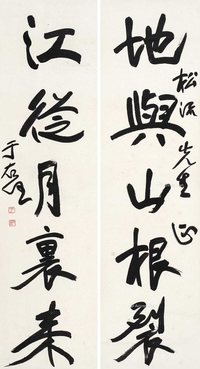 地與山根裂
松濤先生 正
江從月裏來
于右任